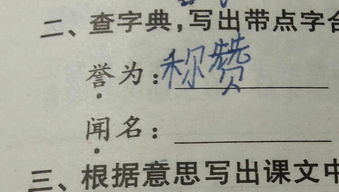 二、查字典,写出带点字
誉为:称赞
闻名:
三、根据意思写出课文中